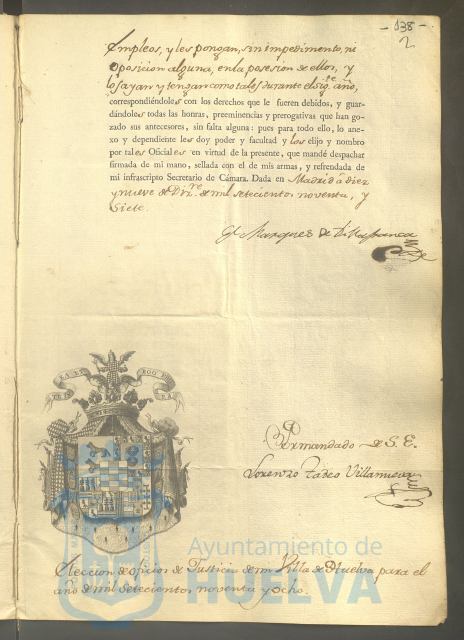 - 138 -
2
Empleos, y les pongan, sin impedimento, ni
oposicion alguna, en la posesion de ellos, y
los ayan y tengan como tales durante el sig.te año,
correspondiéndoles con los derechos que le fueren debidos, y guar-
dándoles todas las honras, preeminencias y prerogativas que han go-
zado sus antecesores, sin falta alguna: pues para todo ello, lo ane-
xo y dependiente les doy poder y facultad y los elijo y nombro
por tales Oficiales en virtud de la presente, que mandé despachar
firmada de mi mano, sellada con el de mis armas, y refrendada de
mi infrascripto Secretario de Cámara. Dada en Madrid a diez
y nueve de Diz.re de mil setecientos noventa, y
Siete.
El Marques de Villafranca
Por mandado de S. E.
Lorenzo Tadeo Villanueva
Ayuntamiento de
HUELVA
Eleccion de oficios de Justicia de mi Villa de Huelva para el
año de mil setecientos noventa y ocho.